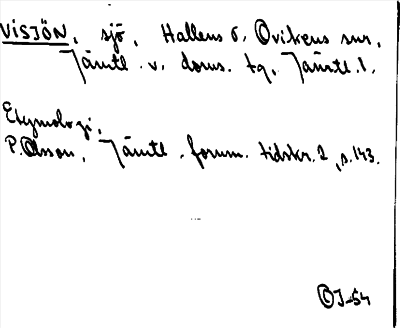 VISJÖN, sjö, Hallens o. Ovikens snr,
Jämtl. v. doms. tg, Jämtl. l.
Etymologi,
P. Olsson, Jämtl. fornm. tidskr. 2, s. 143.
OJ-54